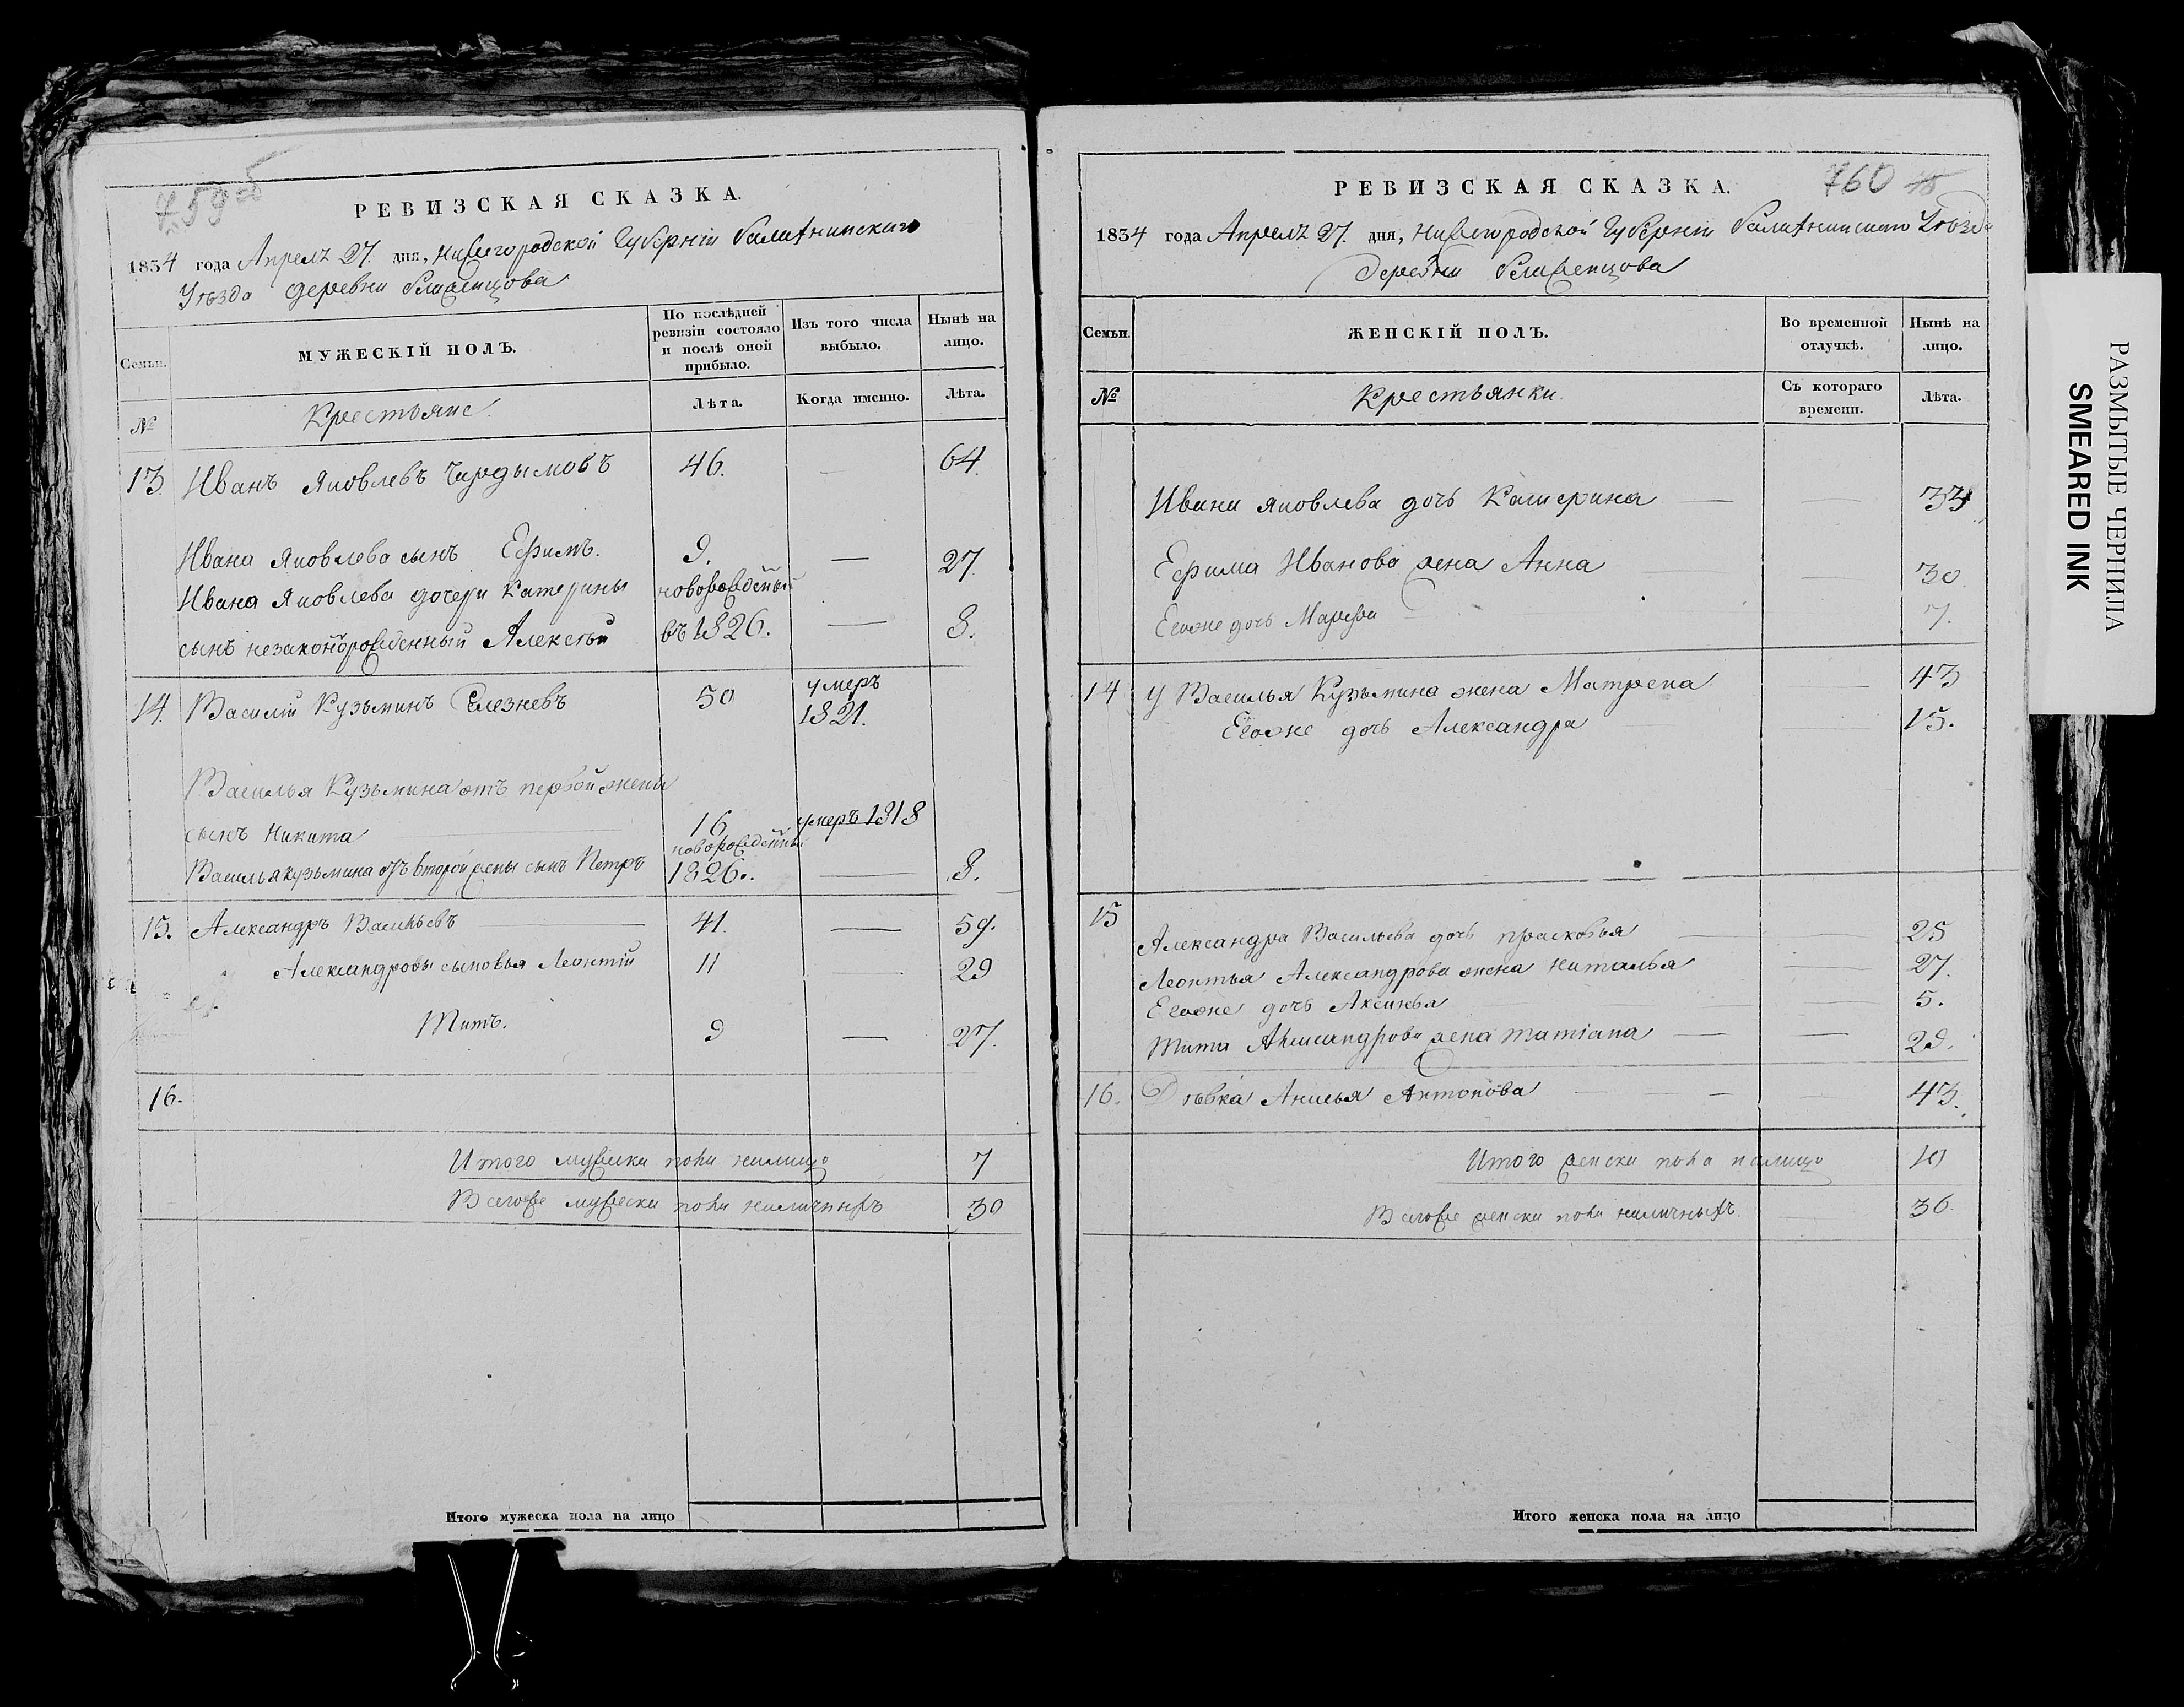 759об
РЕВИЗСКАЯ СКАЗКА.
1834 года Апреля 27. дня, Нижегородской Губерніи Балахнинскаго
Уѣзда деревни
Семьи.
МУЖЕСКІЙ ПОЛЪ.
По послѣдней ревизіи состояло и послѣ оной прибыло.
Изъ того числа выбыло.
Нынѣ на лицо.
№
Крестьяне.
Лѣта.
Когда именно.
Лѣта.
13. Иванъ Яковлевъ 46. — 64.
Ивана Яковлева сынъ Ефимъ. 9. — 27.
Ивана Яковлева дочери Катерины новорожденный
сынъ незаконорожденный Алексѣй въ 1826. — 8.
14. Василій Кузьминъ Селезневъ 50 умеръ 1821.
Василья Кузьмина отъ первой жены
сынъ Никита 16 умеръ 1818
новорожденный
Василья Кузьмина отъ второй жены сынъ Петръ 1826. — 8.
15. Александръ Васильевъ 41. — 59.
Александровы сыновья Леонтій 11 — 29
Титъ. 9 — 27.
16.
Итого мужеска пола налицо 7
Всегоже мужеска пола наличныхъ 30
Итого мужеска пола на лицо
760
РЕВИЗСКАЯ СКАЗКА.
1834 года Апреля 27. дня, Нижегородской Губерніи Балахнинскаго Уѣзда
деревни
Семьи.
ЖЕНСКІЙ ПОЛЪ.
Во временной отлучкѣ.
Нынѣ на лицо.
№
Крестьянки.
Съ котораго времени.
Лѣта.
Ивана Яковлева дочь Катерина — — 33
Ефима Иванова жена Анна — 30
Егоже дочь Марфа 7.
14 у Василья Кузьмина жена Матрена — 43
Егоже дочь Александра — 15.
15
Александра Васильева дочь Прасковья — 25
Леонтья Александрова жена Наталья — 27.
Егоже дочь Аксинья — 5.
Тита Александрова жена Татіана — — 29.
16. Дѣвка Анисья Антонова — — 43.
Итого женска пола налицо 10
Всегоже женска пола наличныхъ. 36.
Итого женска пола на лицо
РАЗМЫТЫЕ ЧЕРНИЛА
SMEARED INK